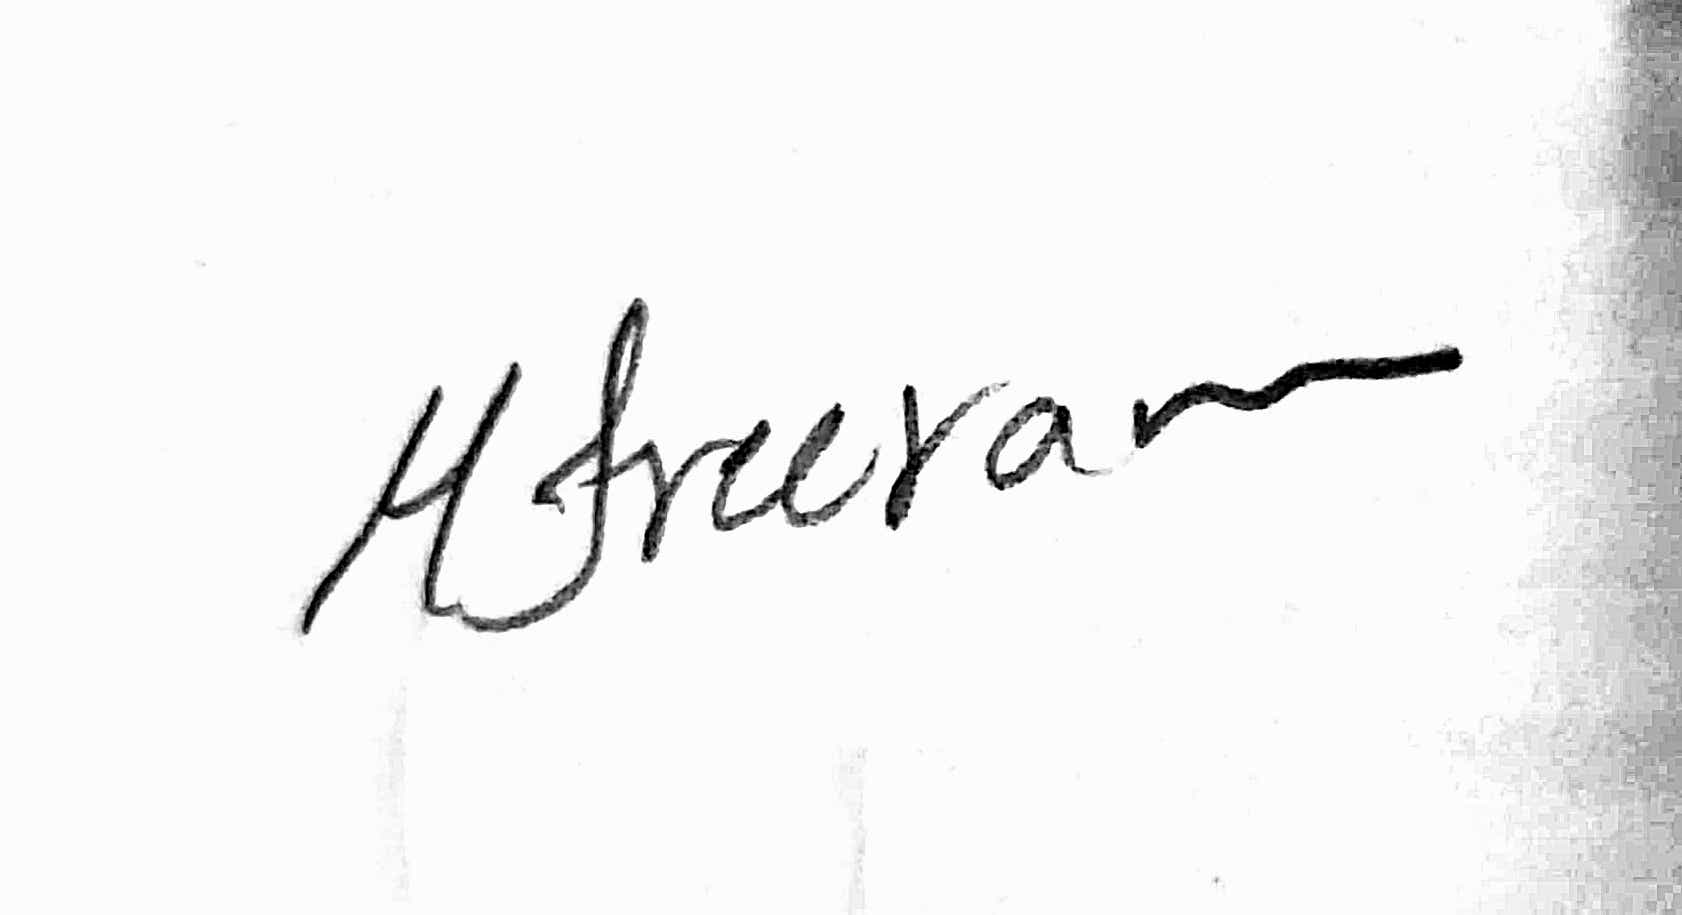 M Sreeram